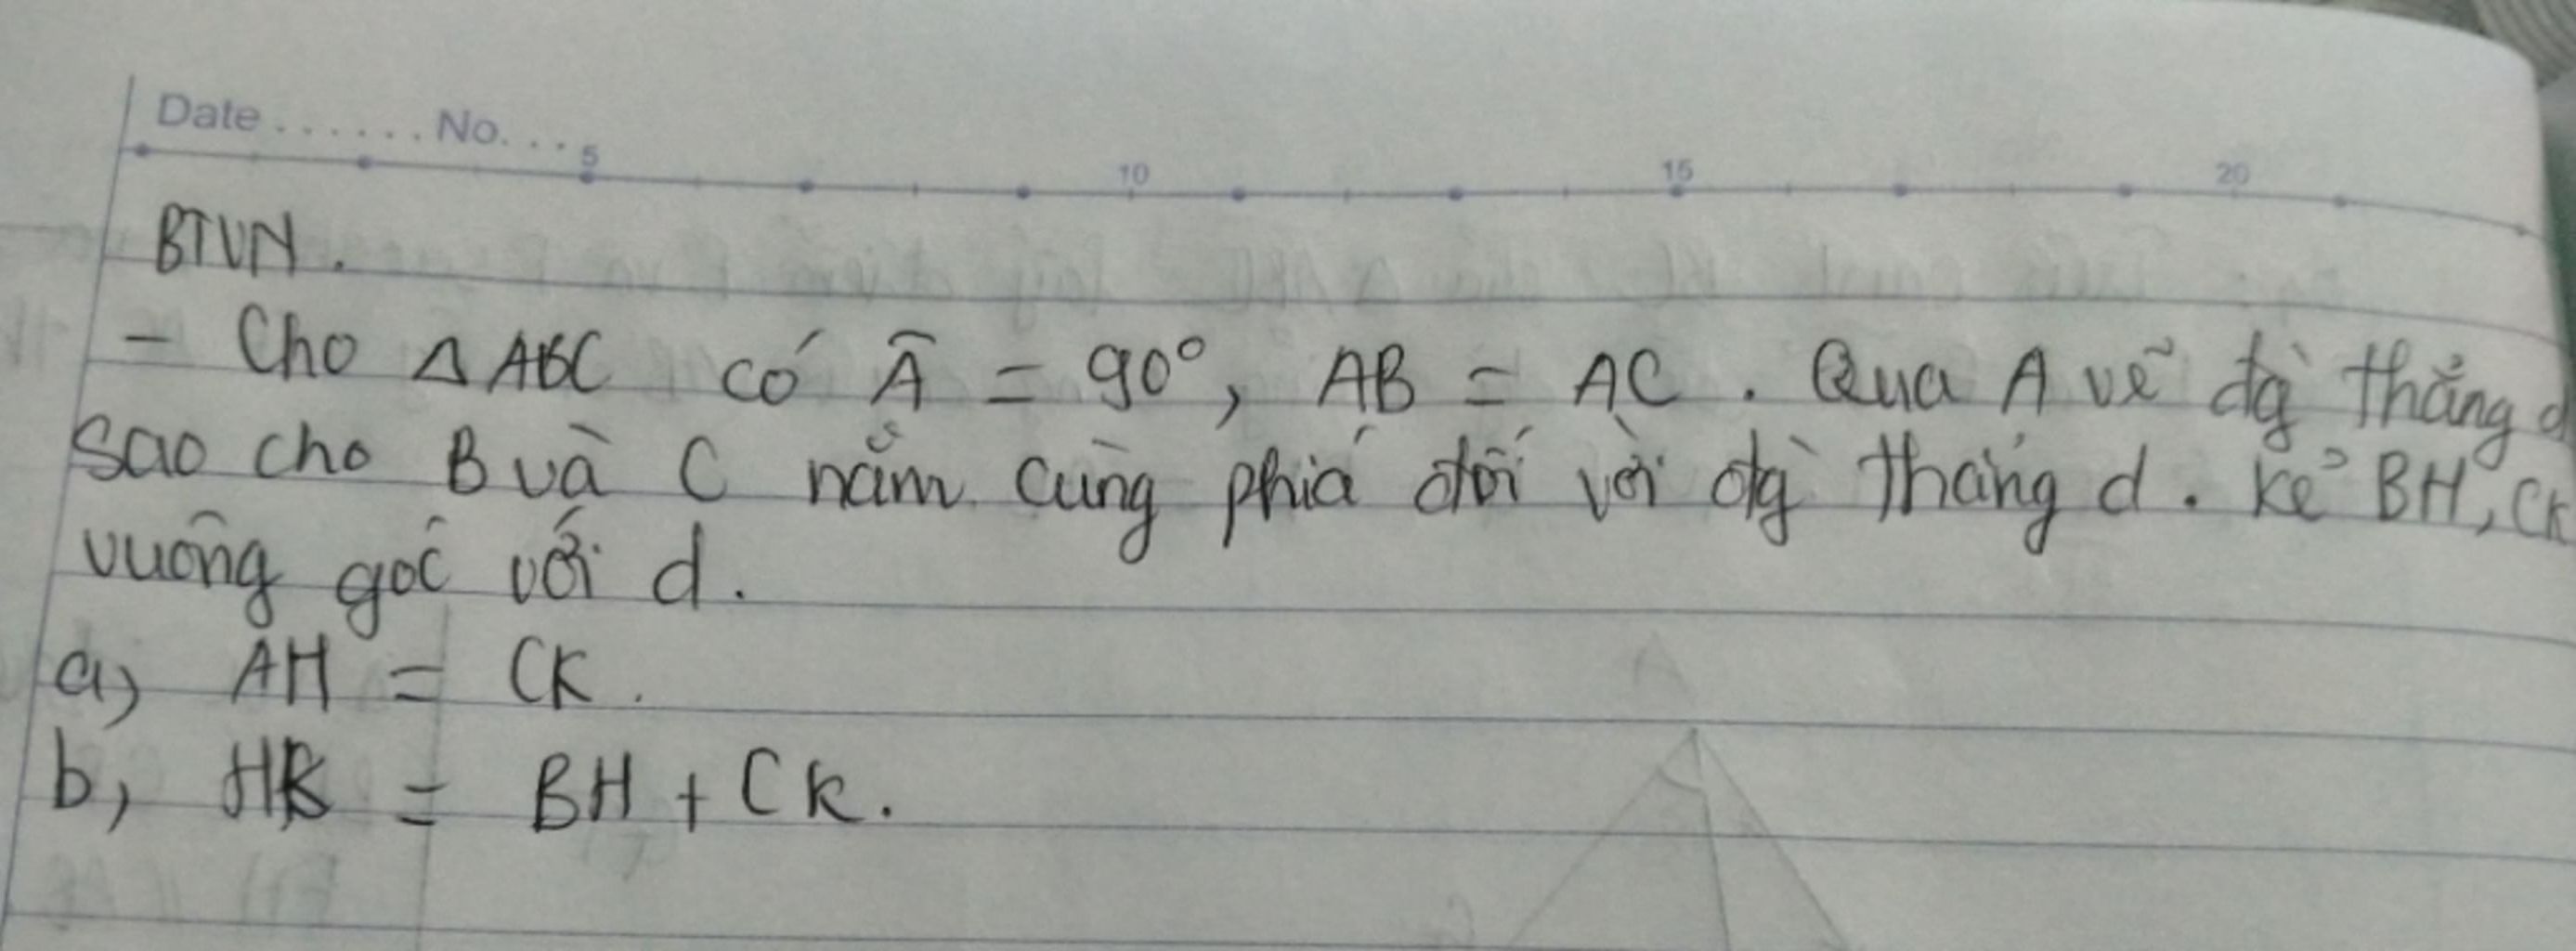 Date....... No....
5 10 15 20
BTVN.
- Cho Δ ABC có Â = 90°, AB = AC. Qua A vẽ đg thẳng d
sao cho B và C nằm cùng phiá đối với đg thẳng d. Kẻ BH, CK
vuông góc với d.
a, AH = CK.
b, HK = BH + CK.